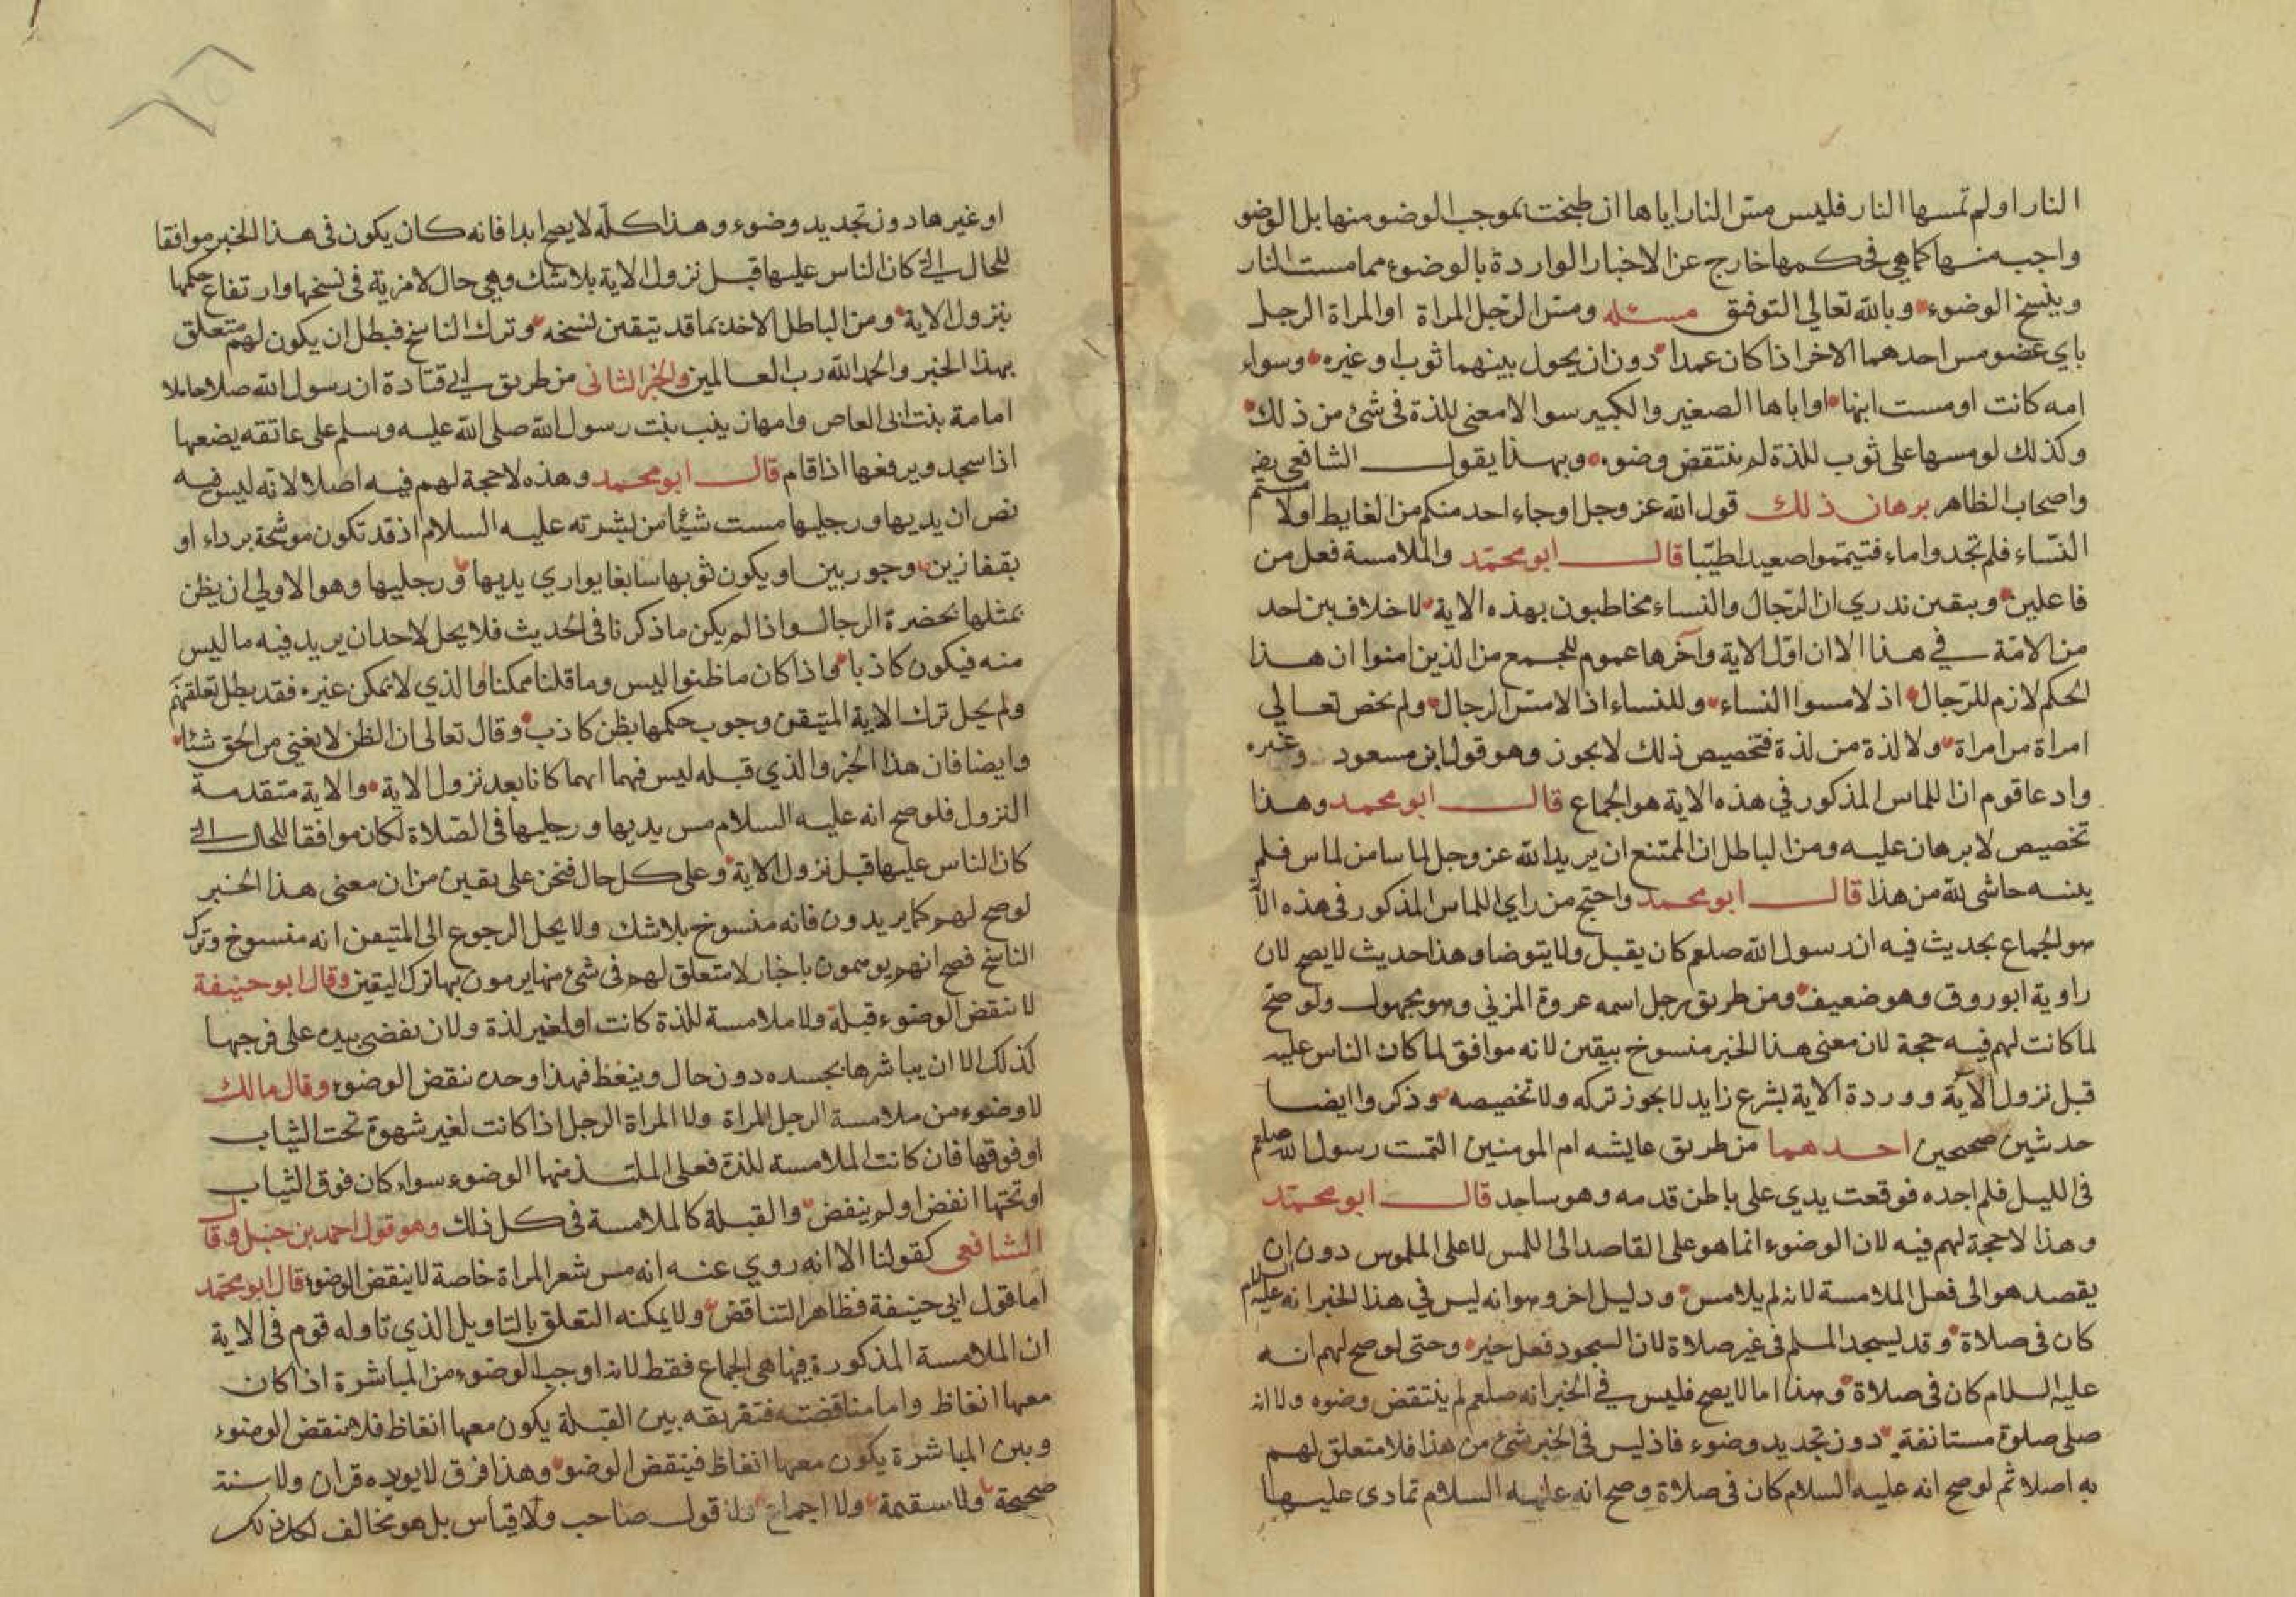 النار او لم تمسها النار فليس مس النار اياها ان طبخت بموجب الوضو منها بل الوضو
واجب منها كما هي في حكمها خارج عن الاخبار الواردة بالوضوء مما مست النار
وبنسخ الوضوء وبالله تعالى التوفيق مسئله ومس الرجل المراة او المراة الرجل
باي عضو مس احدهما الاخر اذا كان عمدا دون ان يحول بينهما ثوب او غيره وسواء
امه كانت او مست ابنها او اباها الصغير والكبير سوا لا معنى للذة في شئ من ذلك
وكذلك لو مسها على ثوب للذة لم ينتقض وضوه وبهذا يقول الشافعي
واصحاب الظاهر برهان ذلك قول الله عز وجل او جاء احد منكم من الغايط او لامستم
النساء فلم تجدوا ماء فتيمموا صعيدا طيبا قال ابو محمد والملامسة فعل من
فاعلين وبيقين ندري ان الرجال والنساء مخاطبون بهذه الاية لا خلاف بين احد
من الامة في هذا لان اول الاية وآخرها عموم للجمع من الذين امنوا ان هذا
الحكم لازم للرجال اذ لامسوا النساء وللنساء اذا لامس الرجال ولم يخص تعالي
امراة من امراة ولا لذة من لذة فتخصيص ذلك لا يجوز وهو قول ابن مسعود وغيره
وادعا قوم ان اللماس المذكور في هذه الاية هو الجماع قال ابو محمد وهذا
تخصيص لا برهان عليه ومن الباطل ان الممتنع ان يريد الله عز وجل لماسا من لماس فلم
يبينه حاشى لله من هذا قال ابو محمد واحتج من راي اللماس المذكور في هذه الاية
هو الجماع بحديث فيه ان رسول الله صلعم كان يقبل ولا يتوضا وهذا حديث لا يصح لان
راوية ابو روق وهو ضعيف ومن طريق رجل اسمه عروة المزني وهو مجهول ولو صح
لما كانت لهم فيه حجة لان معنى هذا الخبر منسوخ بيقين لانه موافق لما كان الناس عليه
قبل نزول الآية ووردة الاية بشرع زايد لا يجوز تركه ولا تخصيصه وذكروا ايضا
حدثين صحيحين احدهما من طريق عايشه ام المومنين التمست رسول الله صلعم
في الليل فلم اجده فوقعت يدي على باطن قدمه وهو ساجد قال ابو محمد
وهذا لا حجة لهم فيه لان الوضوء انما هو على القاصد الى اللمس لا على الملموس دون ان
يقصد هو الى فعل الملامسة لانه لم يلامس ودليل اخر وهو انه ليس في هذا الخبر انه عليه السلام
كان في صلاة وقد يسجد المسلم في غير صلاة لان السجود فعل خير وحتى لو صح لهم انه
عليه السلام كان في صلاة وهذا ما لا يصح فليس في الخبر انه صلعم لم ينتقض وضوه ولا انه
صلى صلوة مستانفة دون تجديد وضوء فاذ ليس في الخبر شئ من هذا فلا متعلق لهم
به اصلا ثم لو صح انه عليه السلام كان في صلاة وصح انه عليه السلام تمادى عليها
او غيرها دون تجديد وضوء وهذا كله لا يصح ابدا فانه كان يكون في هذا الخبر موافقا
للحال التي كان الناس عليها قبل نزول الاية بلا شك وهي حال لا مزية في نسخها وارتفاع حكمها
بنزول الاية ومن الباطل الاخذ بما قد تيقين نسخه وترك الناسخ فبطل ان يكون لهم متعلق
بهذا الخبر والحمد لله رب العالمين والخبر الثاني من طريق ابي قتادة ان رسول الله صلا حاملا
امامة بنت ابي العاص وامها زينب بنت رسول الله صلى الله عليه وسلم على عاتقه يضعها
اذا سجد ويرفعها اذا قام قال ابو محمد وهذه لا حجة لهم فيه اصلا لانه ليس فيه
نص ان يديها ورجليها مست شيئا من بشرته عليه السلام اذ قد تكون موشحة برداء او
بقفازين وجوربين او يكون ثوبها سابغا يواري يديها ورجليها وهو الاولى ان يظن
بمثلها بحضرة الرجال واذا لم يكن ما ذكرنا في الحديث فلا يحل لاحد ان يريد فيه ما ليس
منه فيكون كاذبا واذا كان ما ظنوا ليس وما قلنا ممكنا والذي لا يمكن غيره فقد بطل تعلقهم
ولم يحل ترك الاية المتيقن وجوب حكمها بظن كاذب وقال تعالى ان الظن لا يغني من الحق شئا
وايضا فان هذا الخبر والذي قبله ليس فيهما ايهما كانا بعد نزول الاية والاية متقدمة
النزول فلو صح انه عليه السلام مس يديها ورجليها في الصلاة لكان موافقا للحال التي
كان الناس عليها قبل نزول الاية وعلى كل حال فنحن على يقين من ان معنى هذا الخبر
لو صح لهم كما يريدون فانه منسوخ بلا شك ولا يحل الرجوع الى المتيقن انه منسوخ وترك
الناسخ فصح انهم يوهمون باخبار لا متعلق لهم في شئ منها يرمون بها ترك اليقين وقال ابو حنيفة
لا ينقض الوضوء قبلة ولا ملامسة للذة كانت او لغير لذة ولان يفضي بيده على فرجها
كذلك الا ان يباشرها بجسده دون حال وينغظ فهذا وحده ينقض الوضوء وقال مالك
لا وضوء من ملامسة الرجل المراة ولا المراة الرجل اذا كانت لغير شهوة تحت الثياب
او فوقها فان كانت الملامسة للذة فعلى الملتذ منهما الوضوء سواء كان فوق الثياب
او تحتها انغض او لم ينغض والقبلة كالملامسة في كل ذلك وهو قول احمد بن حنبل وقال
الشافعي كقولنا الا انه روي عنه انه مس شعر المراة خاصة لا ينقض الوضوء قال ابو محمد
اما قول ابي حنيفة فظاهر التناقض ولا يمكنه التعلق بالتاويل الذي تاوله قوم في الاية
ان الملامسة المذكورة فيها هي الجماع فقط لانه اوجب الوضوء من المباشرة اذا كان
معها انغاظ واما مناقضته فتفريقه بين القبلة يكون معها انغاظ فلا ينقض الوضوء
وبين المباشرة يكون معها انغاظ فينقض الوضوء وهذا فرق لا يويده قران ولا سنة
صحيحة ولا سقيمة ولا اجماع ولا قول صاحب ولا قياس بل هو مخالف لكل ذلك